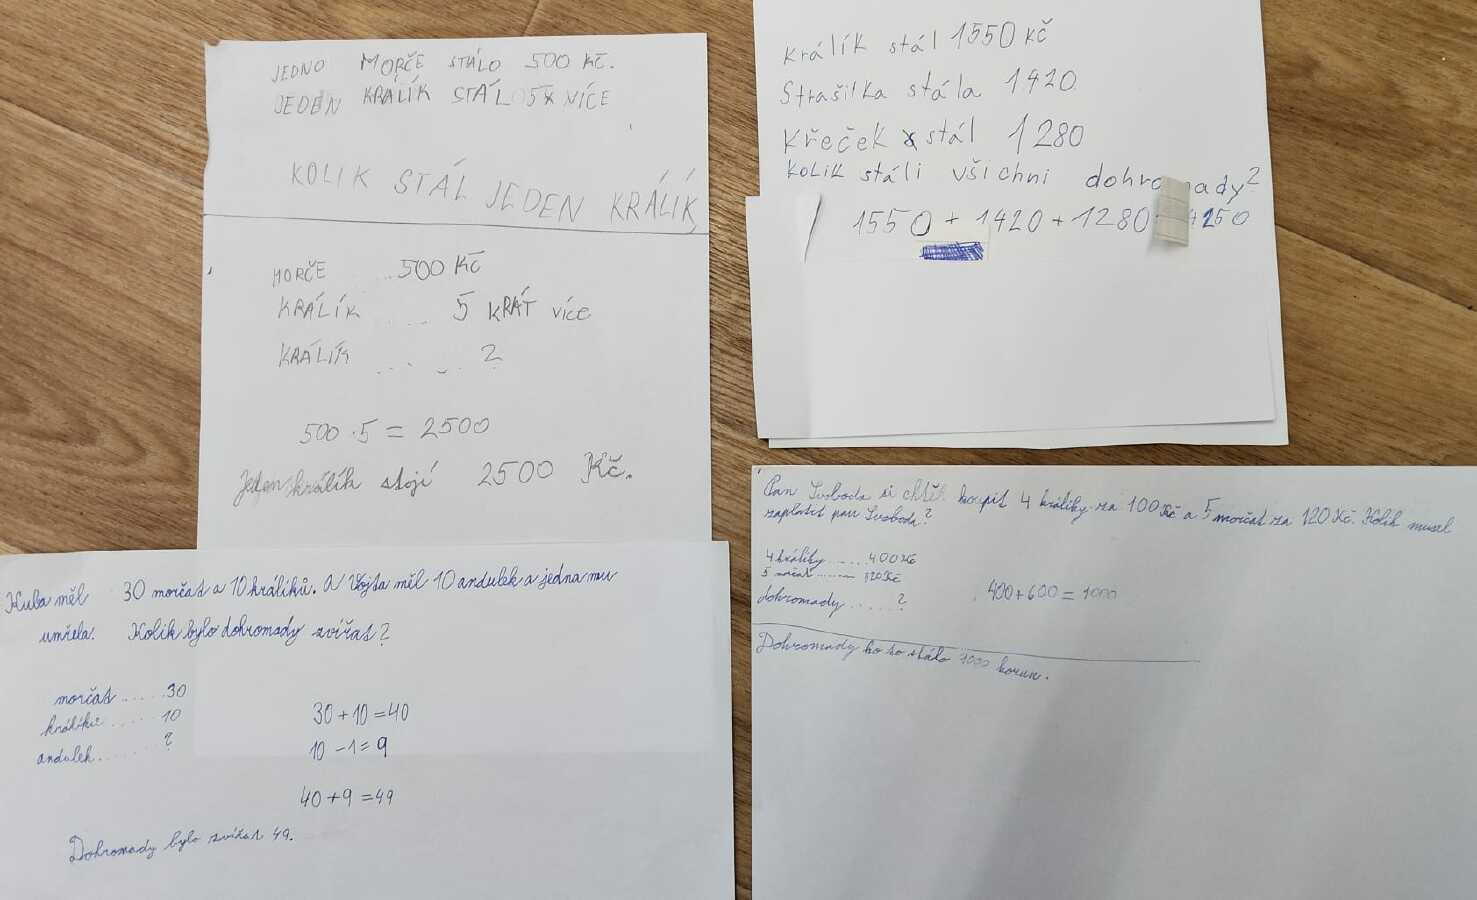 JEDNO MORČE STÁLO 500 KČ.
JEDEN KRÁLÍK STÁL 5X VÍCE
KOLIK STÁL JEDEN KRÁLÍK
MORČE ...500 KČ
KRÁLÍK .... 5 KRÁT VÍCE
KRÁLÍK ..... ?
500 · 5 = 2500
Jeden králík stojí 2500 Kč.
Králík stál 1550 Kč
Strašilka stála 1420
Křeček stál 1280
Kolik stáli všichni dohromady?
1550 + 1420 + 1280 4250
Kuba měl 30 morčat a 10 králíků. A Vojta měl 10 andulek a jedna mu
umřela. Kolik bylo dohromady zvířat?
morčat ..... 30
králíků ...... 10
andulek ....... ?
30 + 10 = 40
10 - 1 = 9
40 + 9 = 49
Dohromady bylo zvířat 49.
Pan Svoboda si chtěl koupit 4 králíky za 100 Kč a 5 morčat za 120 Kč. Kolik musel
zaplatit pan Svoboda?
4 králíky ..... 400 Kč
5 morčat ....... 120 Kč
dohromady ...... ?
400 + 600 = 1000
Dohromady ho to stálo 1000 korun.